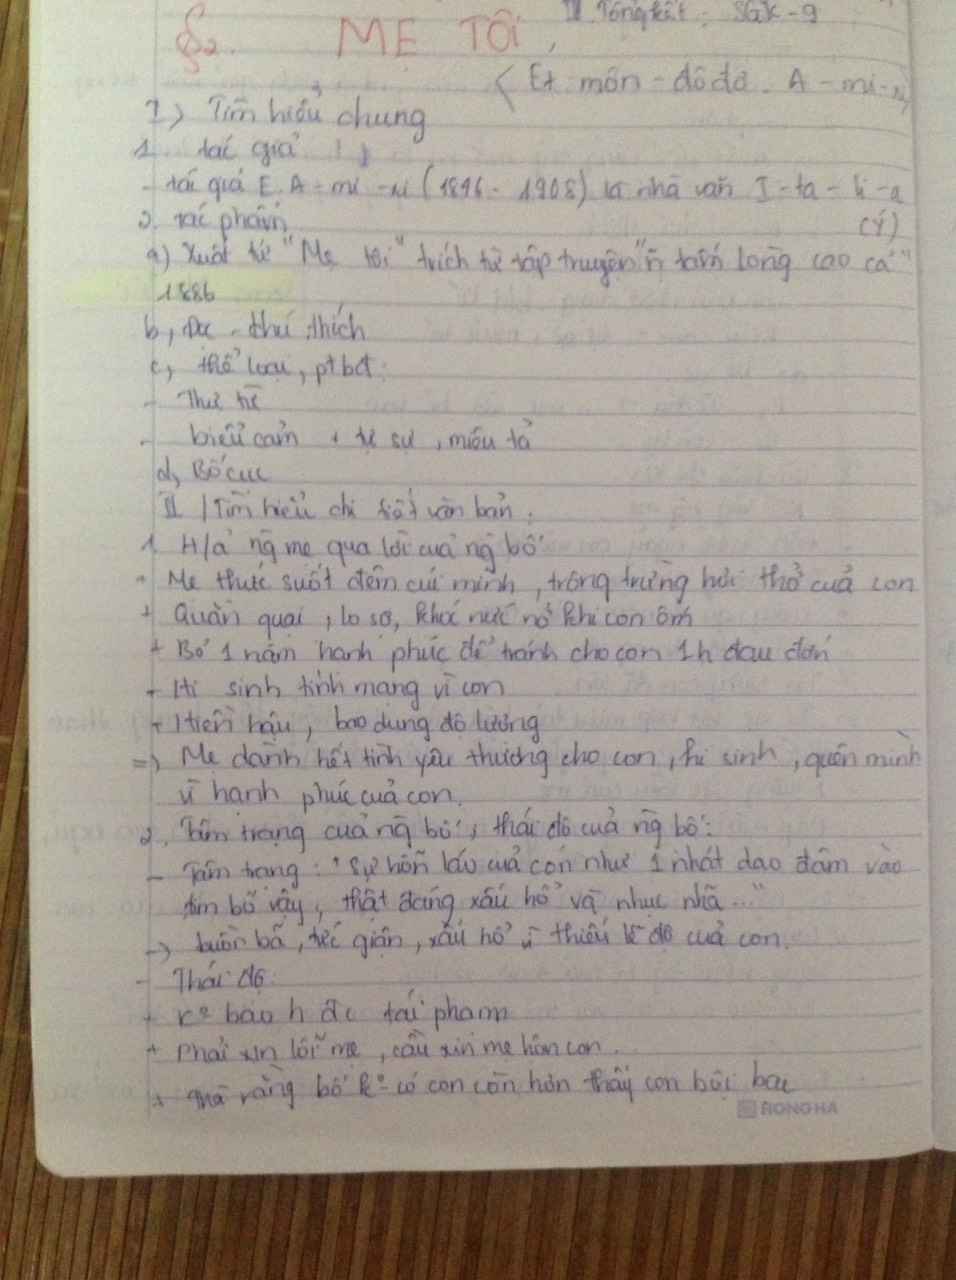 III Tổng kết : SGK - 9
§2. MẸ TÔI
( Et môn - đô đơ. A - mi - xi
I > Tìm hiểu chung
1. tác giả
- tác giả E. A - mi - xi (1846 - 1908) là nhà văn I - ta - li - a
(Ý)
2. tác phẩm
a) Xuất xứ "Mẹ tôi" trích từ tập truyện "n tấm lòng cao cả"
1886
b, Đọc - chú thích
c, thể loại, ptbđ:
- Thư từ
- biểu cảm + tự sự, miêu tả
d, Bố cục
II / Tìm hiểu chi tiết văn bản.
1. H/ả ng mẹ qua lời của ng bố
+ Mẹ thức suốt đêm cúi mình, trông trừng hơi thở của con
+ Quằn quại, lo sợ, khóc nức nở khi con ốm
+ Bỏ 1 năm hạnh phúc để tránh cho con 1h đau đớn
+ Hi sinh tính mạng vì con
+ Hiền hậu, bao dung độ lượng
=> Mẹ dành hết tình yêu thương cho con, hi sinh, quên mình
vì hạnh phúc của con.
2. Tâm trạng của ng bố, thái độ của ng bố:
- Tâm trạng: "Sự hỗn láo của con như 1 nhát dao đâm vào
tim bố vậy, thật đáng xấu hổ và nhục nhã..."
-> buồn bã, tức giận, xấu hổ vì thiếu lễ độ của con.
- Thái độ:
+ k° bao h đc tái phạm
+ phải xin lỗi mẹ, cầu xin mẹ hôn con.
+ thà rằng bố k° có con còn hơn thấy con bội bạc
HONG HA